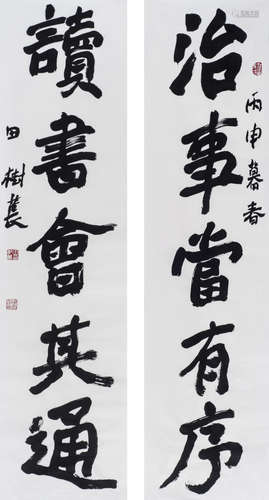 治事當有序
丙申暮春
讀書會其通
田樹萇